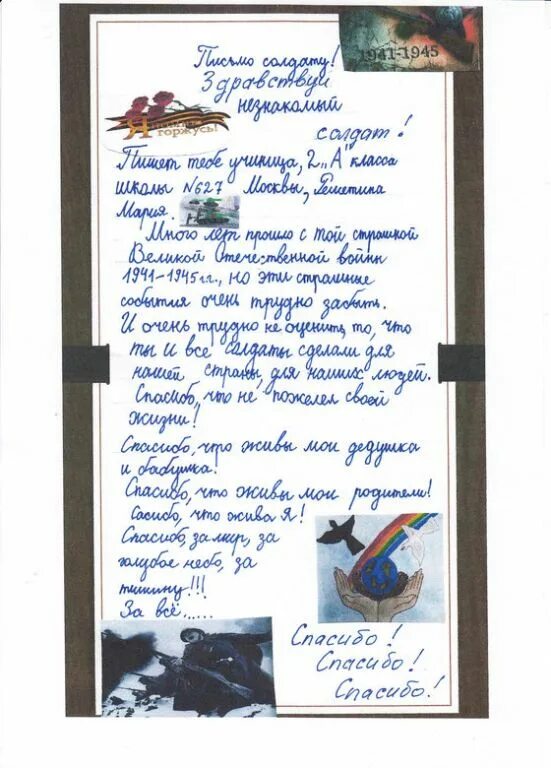 1941-1945
Письмо солдату!
Здравствуй
незнакомый
солдат!
Я
горжусь!
Пишет тебе учиница, 2 „А" класса
школы №627 Москвы, Решетина
Мария.
Много лет прошло с той страшной
Великой Отечественной войны
1941-1945 гг., но эти страшные
события очень трудно забыть.
И очень трудно не оценить то, что
ты и все солдаты сделали для
нашей страны, для наших людей.
Спасибо, что не пожелел своей
жизни!
Спасибо, что живы мои дедушка
и бабушка!
Спасибо, что живы мои родители!
Сасибо, что жива Я!
Спасибо, за мир, за
голубое небо, за
тишину!!!
За всё.....
Спасибо!
Спасибо!
Спасибо!